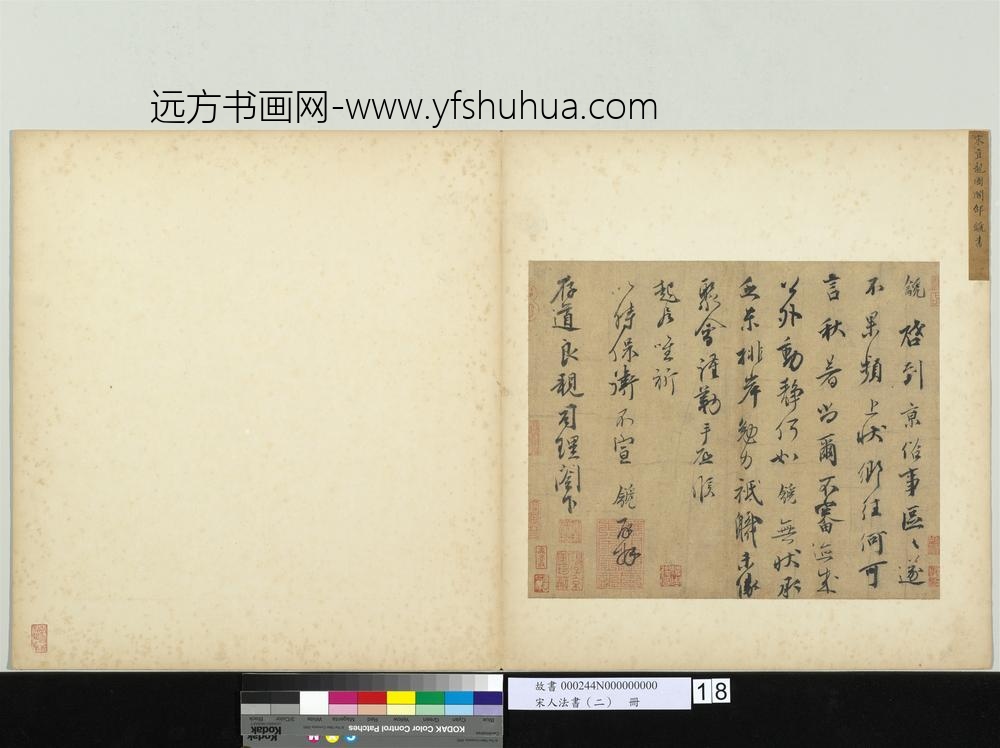 远方书画网-www.yfshuhua.com
宋直龍圖閣邵䶵書
䶵啓到京俗事區區遂
不果頻上狀鄉往何可
言秋暑尚爾不審
以外動靜何如䶵無狀承
乏東排岸勉力祇職未緣
聚會謹勒手啓候
起居唯祈
以時保衛不宣䶵再拜
存道良親司理閣下
故書 000244N000000000
宋人法書（二） 冊
18
Black
3/Color
White
Magenta
Red
Yellow
Green
Cyan
Blue
KODAK Color Control Patches
Kodak